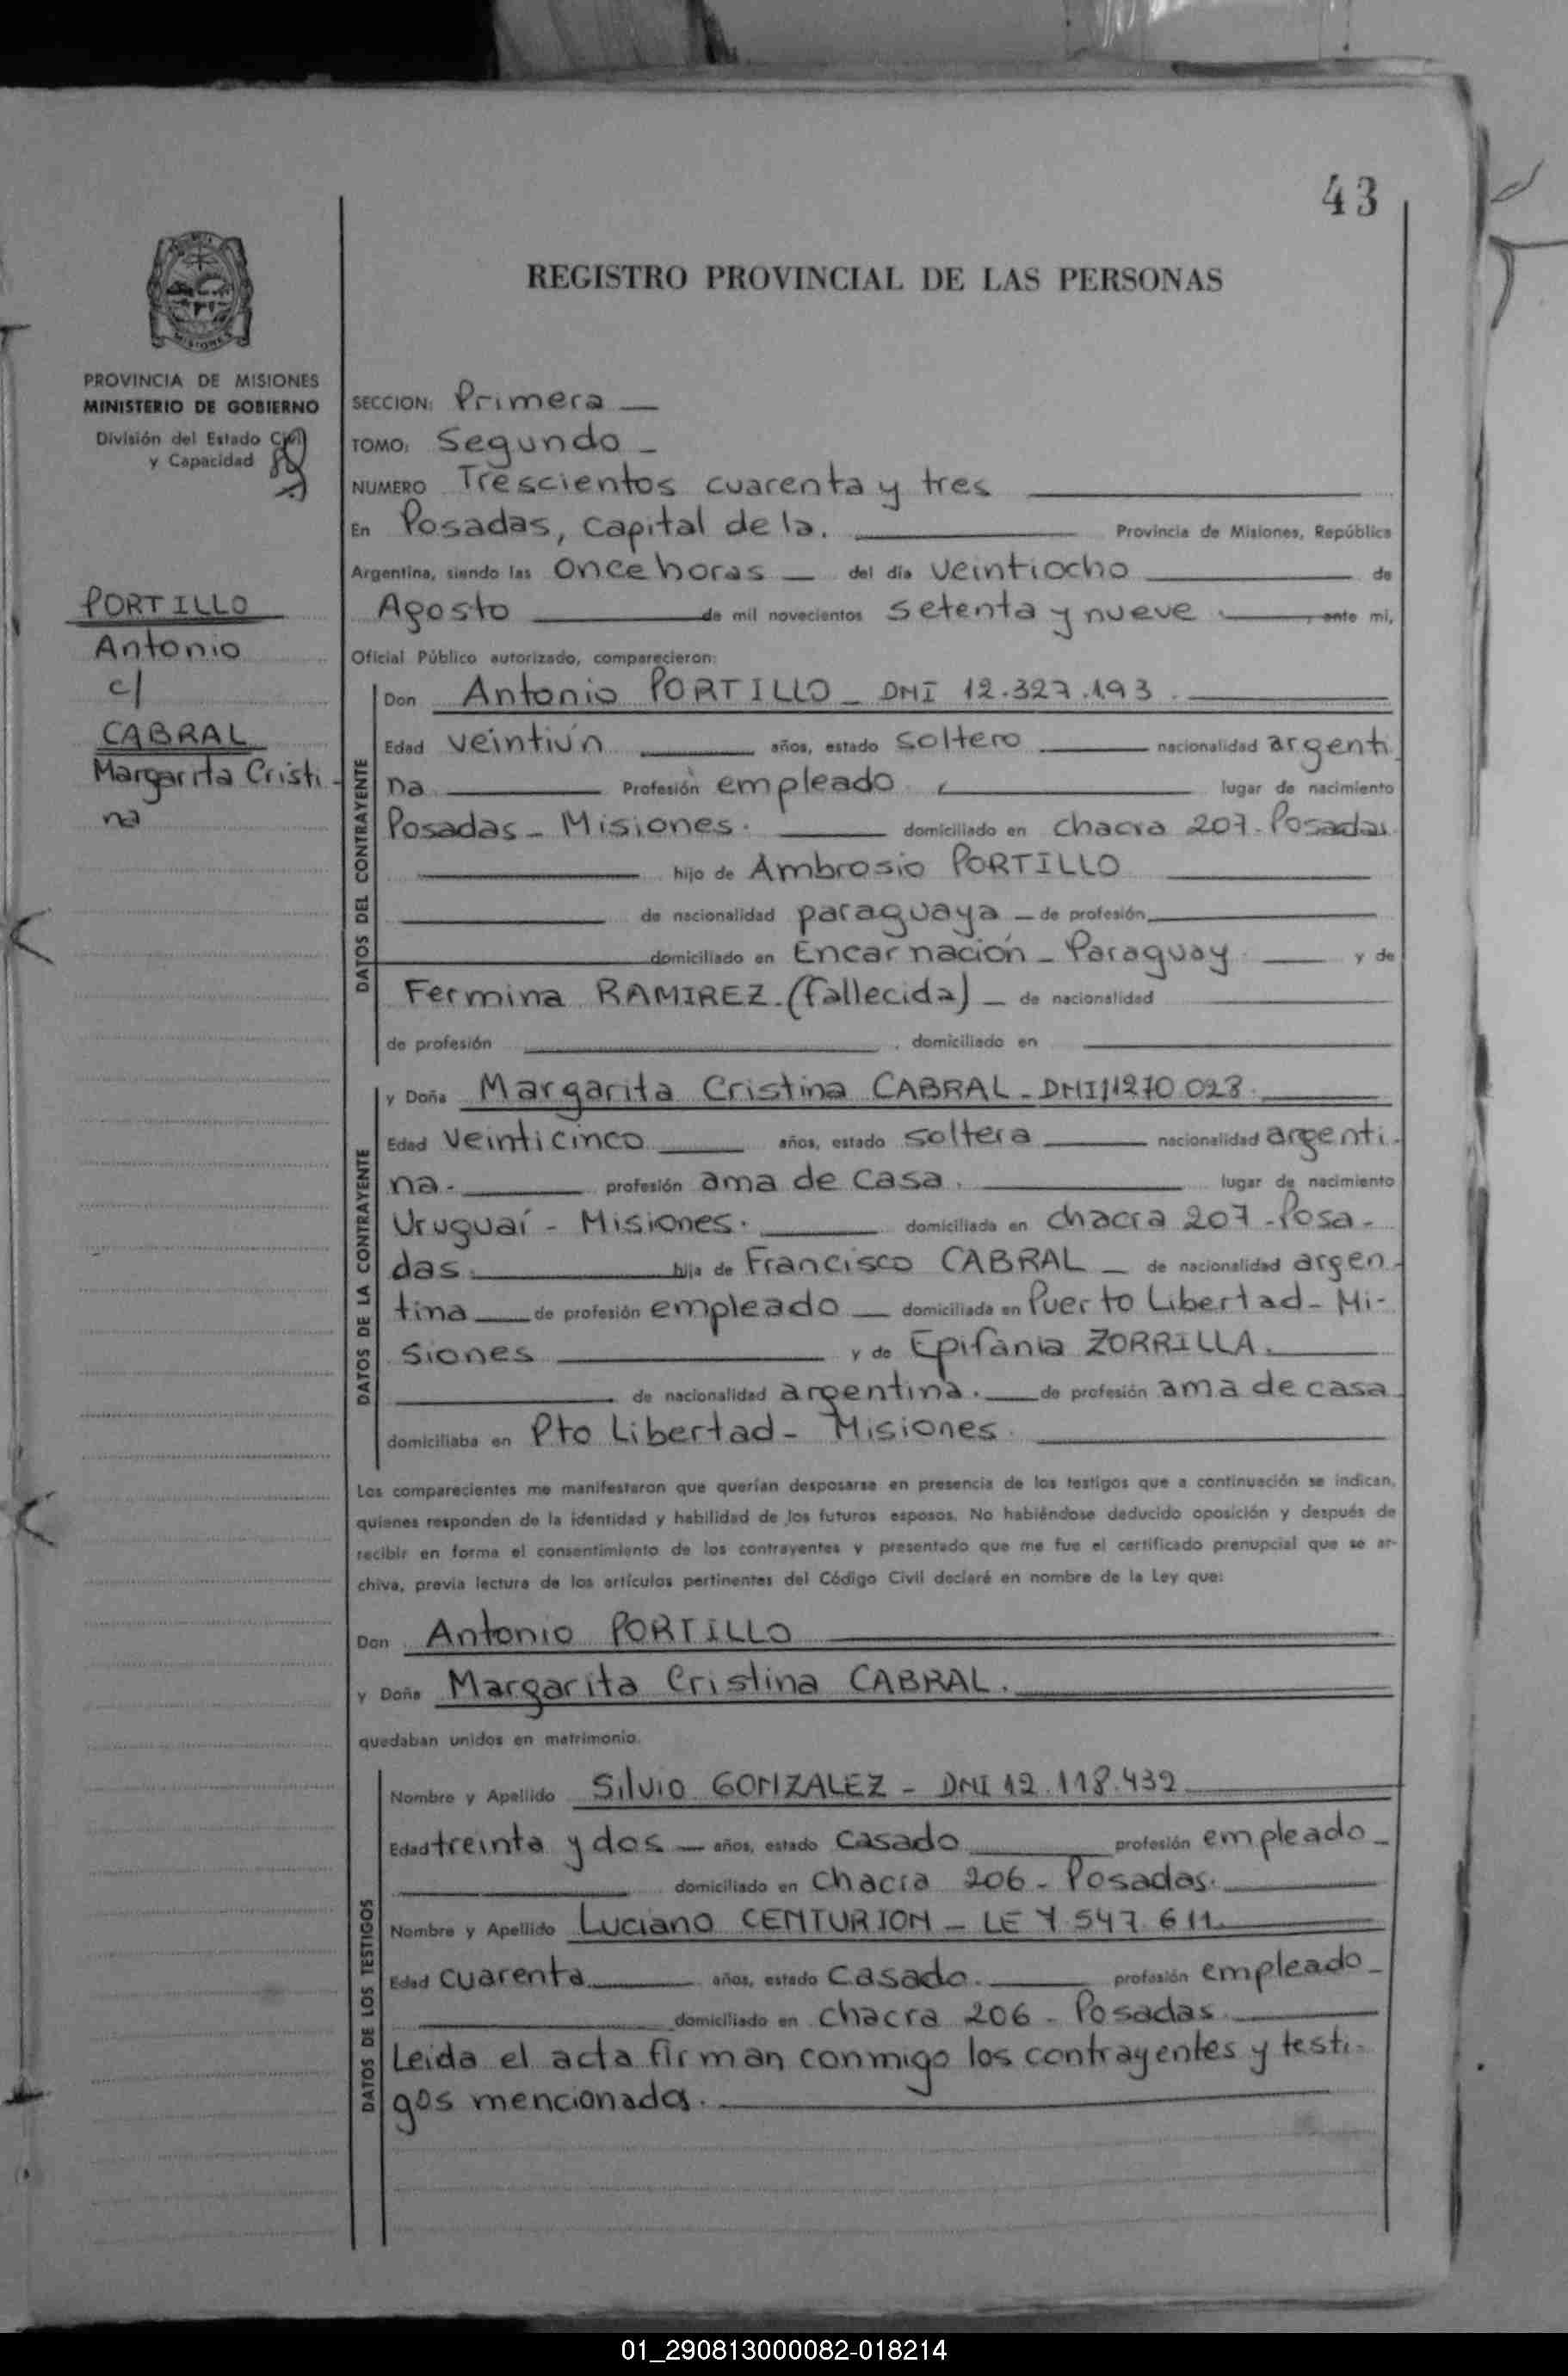 43
REGISTRO PROVINCIAL DE LAS PERSONAS
MISIONES
PROVINCIA DE MISIONES
MINISTERIO DE GOBIERNO
División del Estado Civil
y Capacidad
PORTILLO
Antonio
c/
CABRAL
Margarita Cristi-
na
SECCION: Primera —
TOMO: Segundo —
NUMERO Trescientos cuarenta y tres
En Posadas, capital de la. Provincia de Misiones, República
Argentina, siendo las Once horas — del día veintiocho de
Agosto de mil novecientos setenta y nueve, ante mi,
Oficial Público autorizado, comparecieron:
DATOS DEL CONTRAYENTE
Don Antonio PORTILLO - DNI 12.327.193.
Edad veintiún años, estado soltero nacionalidad argenti-
na Profesión empleado lugar de nacimiento
Posadas - Misiones. domiciliado en chacra 207 - Posadas
hijo de Ambrosio PORTILLO
de nacionalidad paraguaya — de profesión
domiciliado en Encarnación - Paraguay y de
Fermina RAMIREZ. (fallecida) — de nacionalidad
de profesión , domiciliado en
DATOS DE LA CONTRAYENTE
y Doña Margarita Cristina CABRAL - DNI 11270 028.
Edad veinticinco años, estado soltera nacionalidad argenti-
na. profesión ama de casa. lugar de nacimiento
Uruguaí - Misiones. domiciliada en chacra 207 - Posa-
das. hija de Francisco CABRAL — de nacionalidad argen-
tina de profesión empleado — domiciliada en Puerto Libertad - Mi-
siones y de Epifania ZORRILLA.
de nacionalidad argentina. de profesión ama de casa
domiciliaba en Pto Libertad - Misiones.
Los comparecientes me manifestaron que querían desposarse en presencia de los testigos que a continuación se indican,
quienes responden de la identidad y habilidad de los futuros esposos. No habiéndose deducido oposición y después de
recibir en forma el consentimiento de los contrayentes y presentado que me fue el certificado prenupcial que se ar-
chiva, previa lectura de los artículos pertinentes del Código Civil declaré en nombre de la Ley que:
Don Antonio PORTILLO
y Doña Margarita Cristina CABRAL.
quedaban unidos en matrimonio.
DATOS DE LOS TESTIGOS
Nombre y Apellido Silvio GONZALEZ - DNI 12.118.432
Edad treinta y dos — años, estado casado profesión empleado -
domiciliado en chacra 206 - Posadas.
Nombre y Apellido Luciano CENTURION - LE 7.547.611.
Edad cuarenta años, estado casado. profesión empleado -
domiciliado en chacra 206 - Posadas.
Leida el acta firman conmigo los contrayentes y testi-
gos mencionados.
01_290813000082-018214